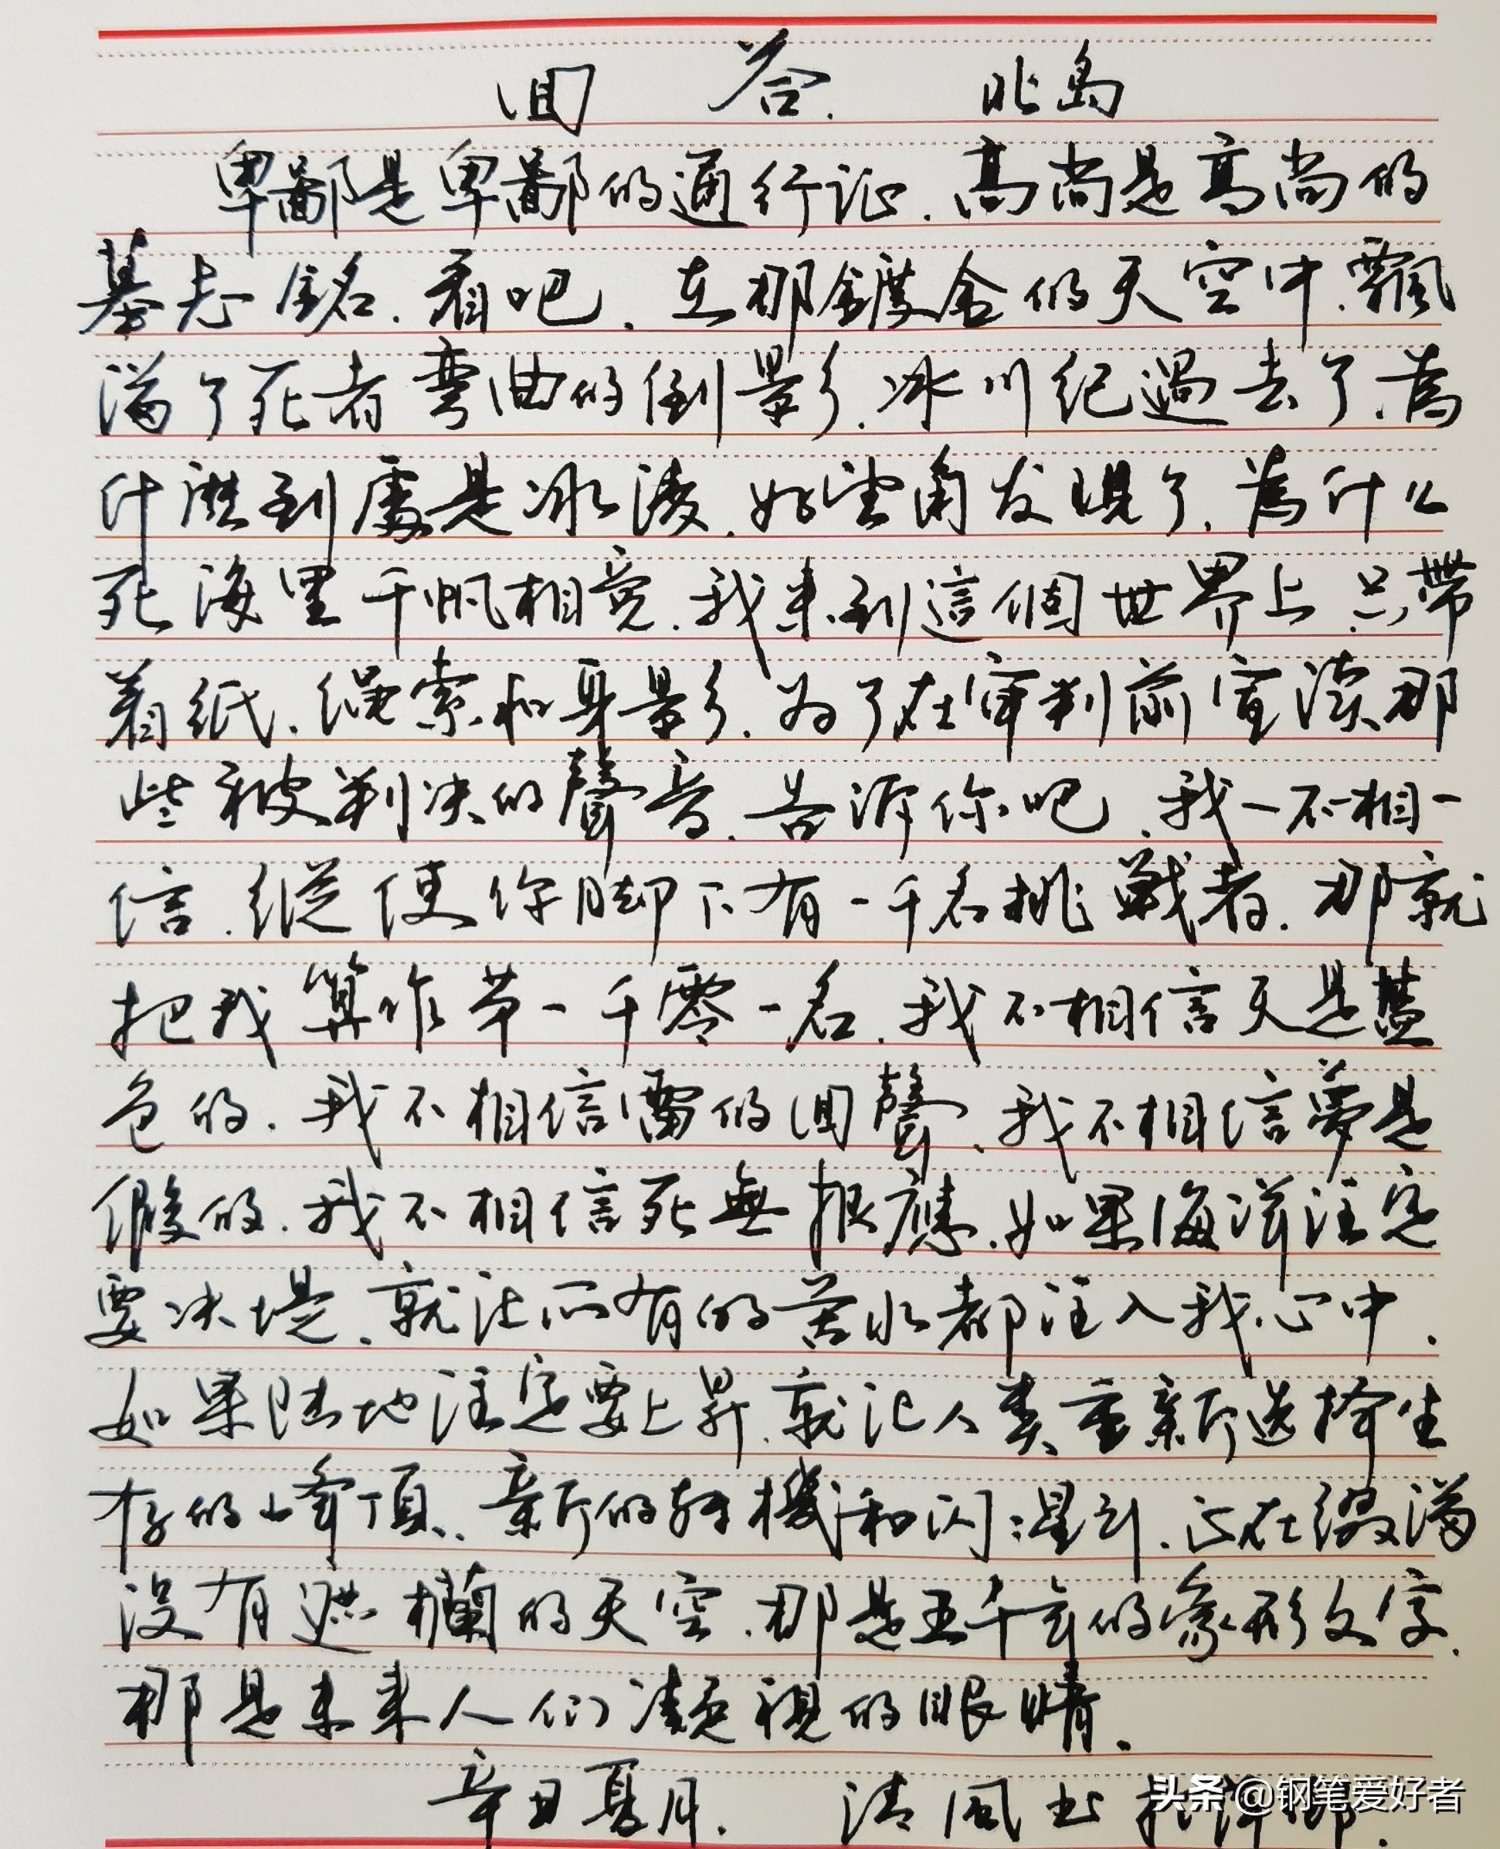 回答. 北岛
卑鄙是卑鄙的通行证.高尚是高尚的
墓志銘.看吧.在那鍍金的天空中.飄
满了死者弯曲的倒影.冰川纪過去了.為
什麽到處是冰凌.好望角发現了.為什么
死海里千帆相竞.我来到這個世界上.只帶
着紙.绳索和身影.为了在审判前宣读那
些被判决的聲音.告诉你吧.我一不相一
信.纵使你脚下有一千名挑戰者.那就
把我算作第一千零一名.我不相信天是藍
色的.我不相信雷的回聲.我不相信夢是
假的.我不相信死無报應.如果海洋注定
要决堤.就让所有的苦水都注入我心中.
如果陆地注定要上昇.就让人类重新选择生
存的峰頂.新的转機和闪闪星斗.正在缀满
没有遮欄的天空.那是五千年的象形文字.
那是未来人们凝視的眼睛.
辛丑夏月. 清风书于
头条@钢笔爱好者